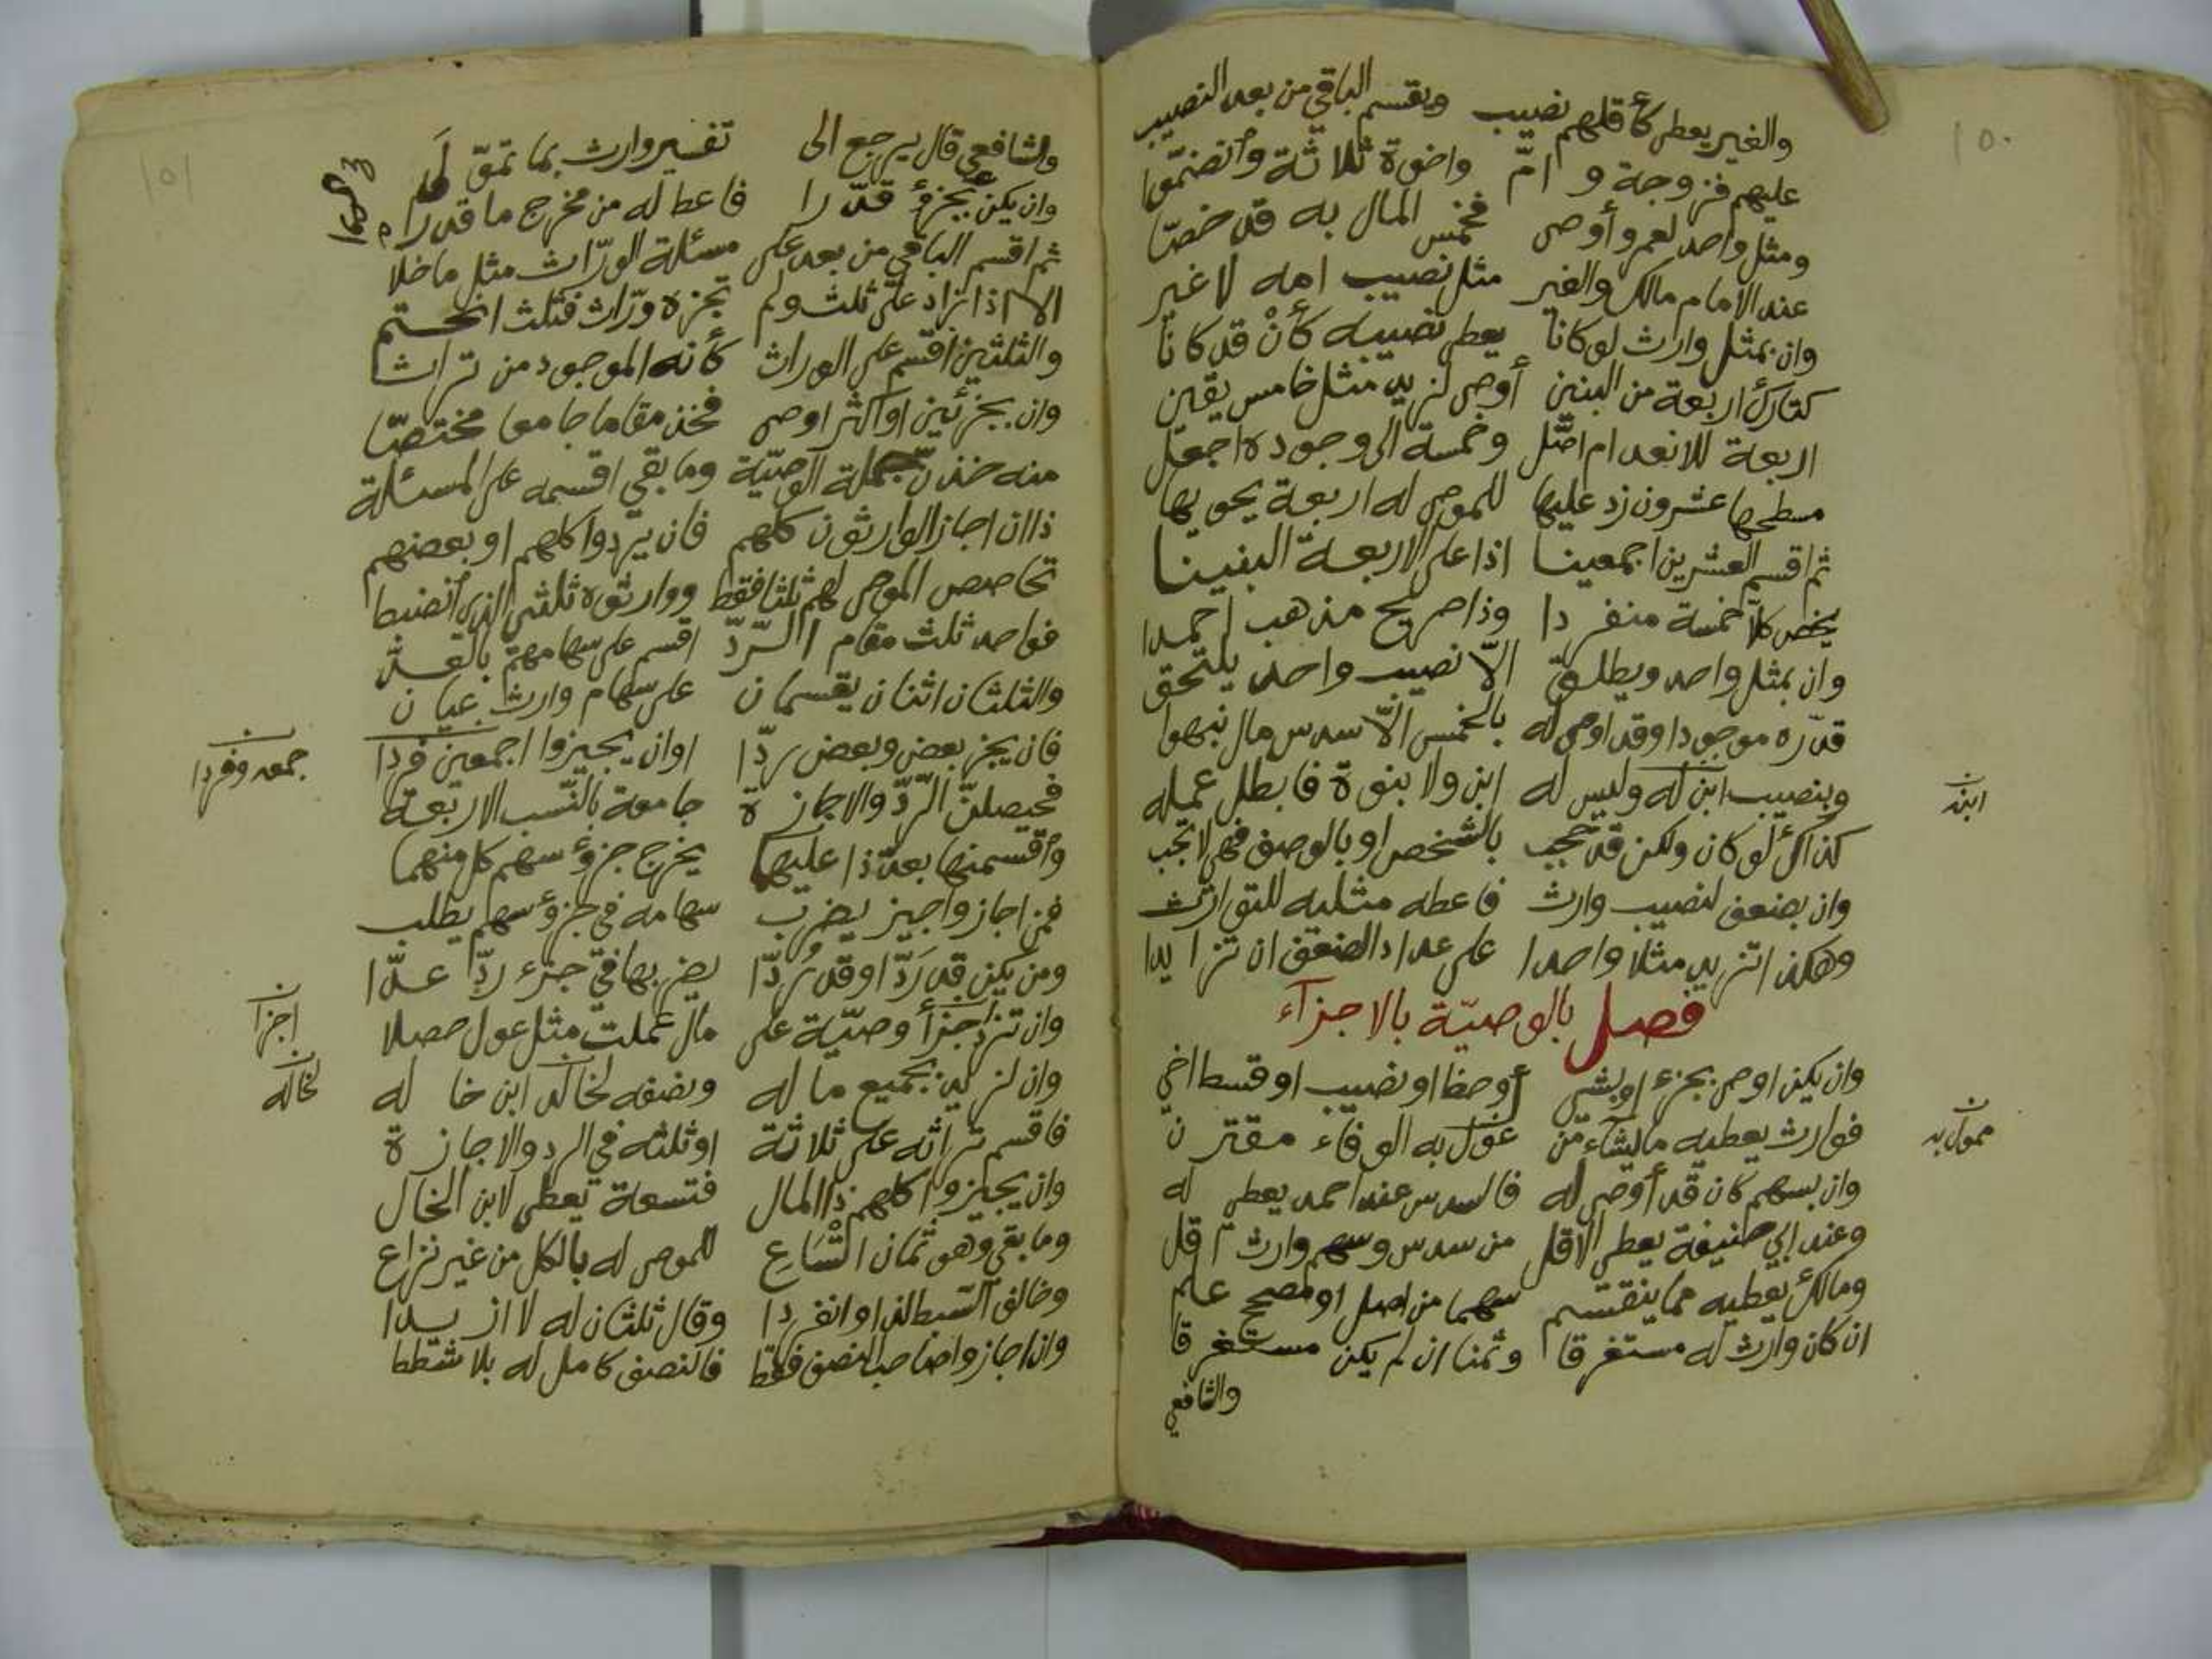 ١٥٠
والغير يعطى كأقلهم نصيب ويقسم الباقي من بعد النصيب
عليهم فزوجة و امّ واخوة ثلاثة وأنضمّوا
ومثل واحد لعمرو أوصى فخمس المال به قد خصّا
عند الامام مالك والغير مثل نصيب امه لا غير
وان بمثل وارث لو كانا يعطى نصيبه كأنْ قد كانا
كتارك اربعة من البنين أوصى لزيد مثل خامس يقين
اربعة للانعدام اصّل وخمسة الى وجوده اجعل
مسطحها عشرون زد عليها للموصى له اربعة يحويها
ثم اقسم العشرين اجمعينا اذا على الاربعة البنينا
يخص كلاّ خمسة منفردا وذا صريح مذهب احمدا
وان بمثل واحد ويطلق الاّ نصيب واحد يلتحق
قدّره موجودا وقد اوصى له بالخمس الاّ سدس مال نبهوا
وبنصيب ابن له وليس له ابن ولا بنوة فابطل عمله
ابنه
كذاك لو كان ولكن قد حجب بالشخص او بالوصف فهي لا تجب
وان بضعف لنصيب وارث فاعطه مثليه للتوارث
وهكذا تزيد مثلا واحدا على عداد الضعف ان تزايدا
فصل بالوصيّة بالاجزآء
وان يكن اوصى بجزء او بشي أو حظ او نصيب او قسط اخي
فوارث يعطيه ما يشاء من غول به الوفاء مقترن
ممول به
وان بسهم كان قد أوصى له فالسدس عند احمد يعطى له
وعند ابي حنيفة يعطى الاقل من سدس وسهم وارث اقل
ومالك يعطيه مما ينقسم سهما من اصل او مصحح علم
ان كان وارث له مستغرقا وثمنا ان لم يكن مستغرقا
والشافعي
١٥١
والشافعي قال يرجع الى تفسير وارث بما تموّلا
وان يكن بجزؤ قدّرا فاعط له من مخرج ما قدرا
ثم اقسم الباقي من بعد على مسئلة الورّاث مثل ما خلا
الا اذا زاد على ثلث ولم تجزه ورّاث فثلث انحتم
والثلثين اقسم على الوراث كأنه الموجود من تراث
وان بجزئين او اكثر اوصى فخذ مقاما جامعا مختصّا
منه خذن جملة الوصيّة وما بقي اقسمه على المسئلة
ذا ان اجاز الوارثون كلهم فان يردوا كلهم او بعضهم
تحاصص الموصى لهم ثلثا فقط ووارثوه ثلثي الذي أنضبطا
فواحد ثلث مقام الردّ اقسم على سهامهم بالعدّ
والثلثان اثنان يقسمان على سهام وارث عيان
فان يجز بعض وبعض ردّا اوان يجيزوا اجمعين فردا
جمعه وفردا
فحصلنّ الردّ والاجازة جامعة بالنّسب الاربعة
وأقسمنها بعد ذا عليها يخرج جزؤ سهم كل منهما
فمن اجاز واجيز يضرب سهامه في جزؤ سهم يطلب
ومن يكن قد رَدّا او قد رُدّا يضربها في جزء ردّا عدّا
وان تزد اجزأ وصيّة على مال عملت مثل عول حصلا
اجزا
وان لزيد بجميع ما له ونصفه لخاله ابن خاله
لخاله
فاقسم تراثه على ثلاثة او ثلثه في الرد والاجازة
وان يجيزوا كلهم ذا المال فتسعة تعطى لابن الخال
وما بقي وهو ثمان اتساع للموصى له بالكل من غير نزاع
وخالف السبط لذا وانفردا وقال ثلثان له لا ازيدا
وان اجازوا صاحب النصف فقط فالنصف كامل له بلا شطط